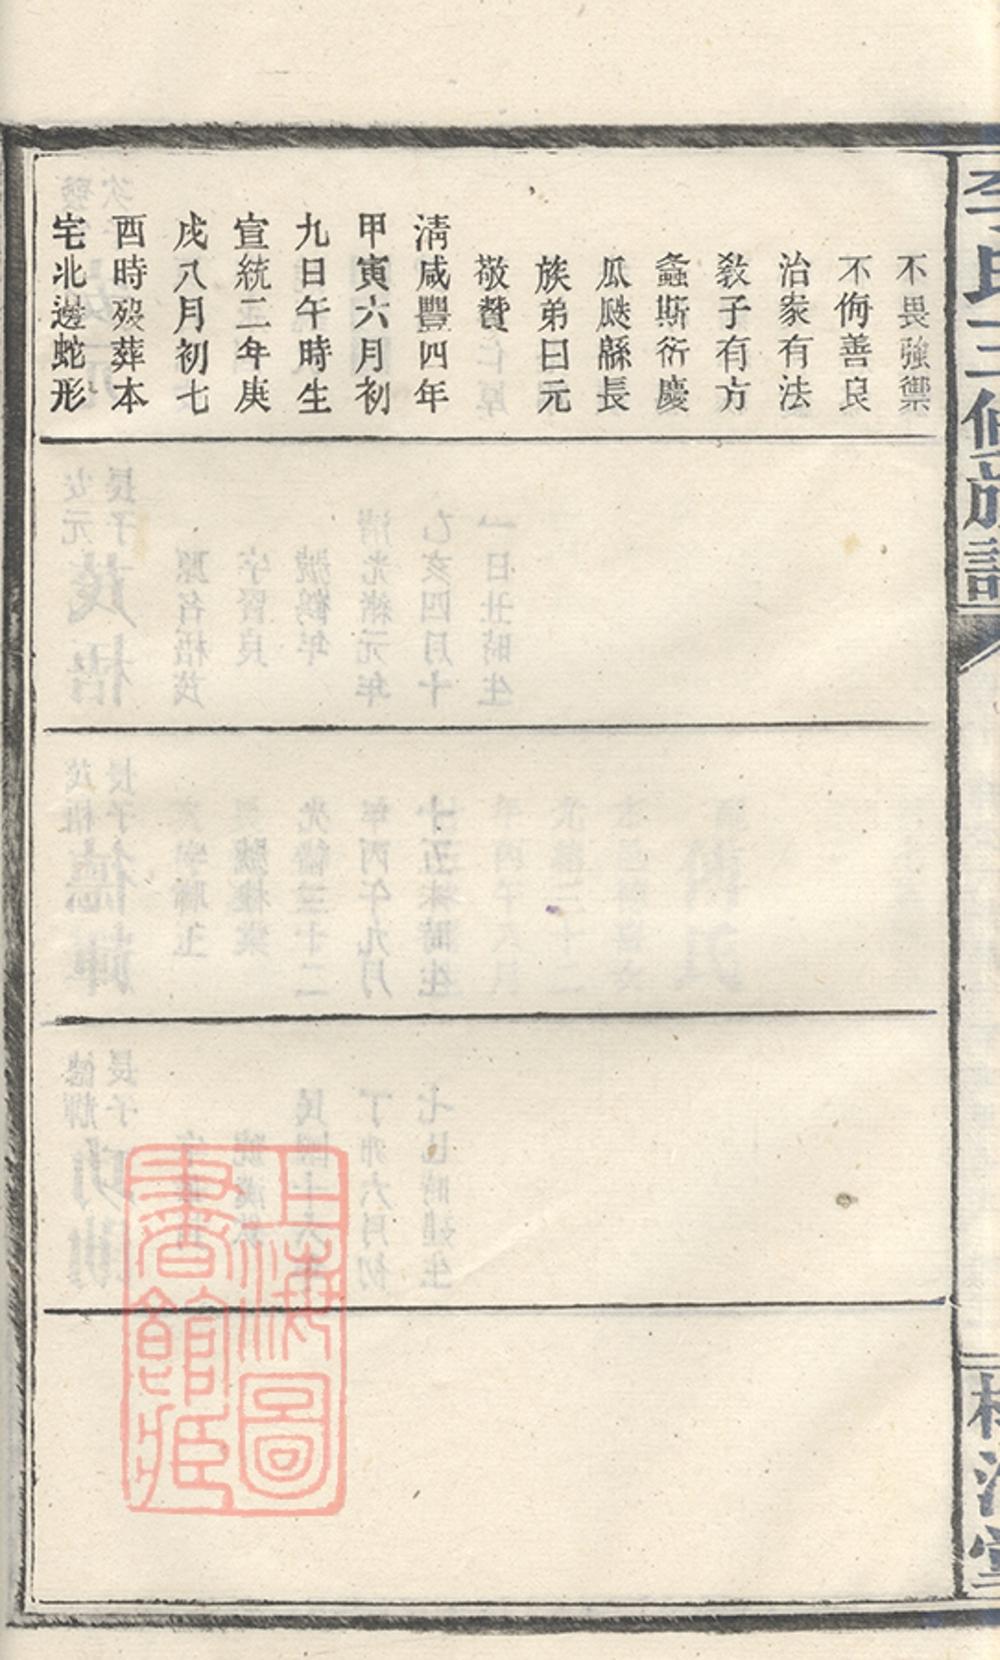 李氏三修族譜
不畏強禦
不侮善良
治家有法
敎子有方
螽斯衍慶
瓜瓞緜長
族弟曰元
敬贊
淸咸豐四年
甲寅六月初
九日午時生
宣統二年庚
戌八月初七
酉時歿葬本
宅北邊蛇形
上海圖
書館藏